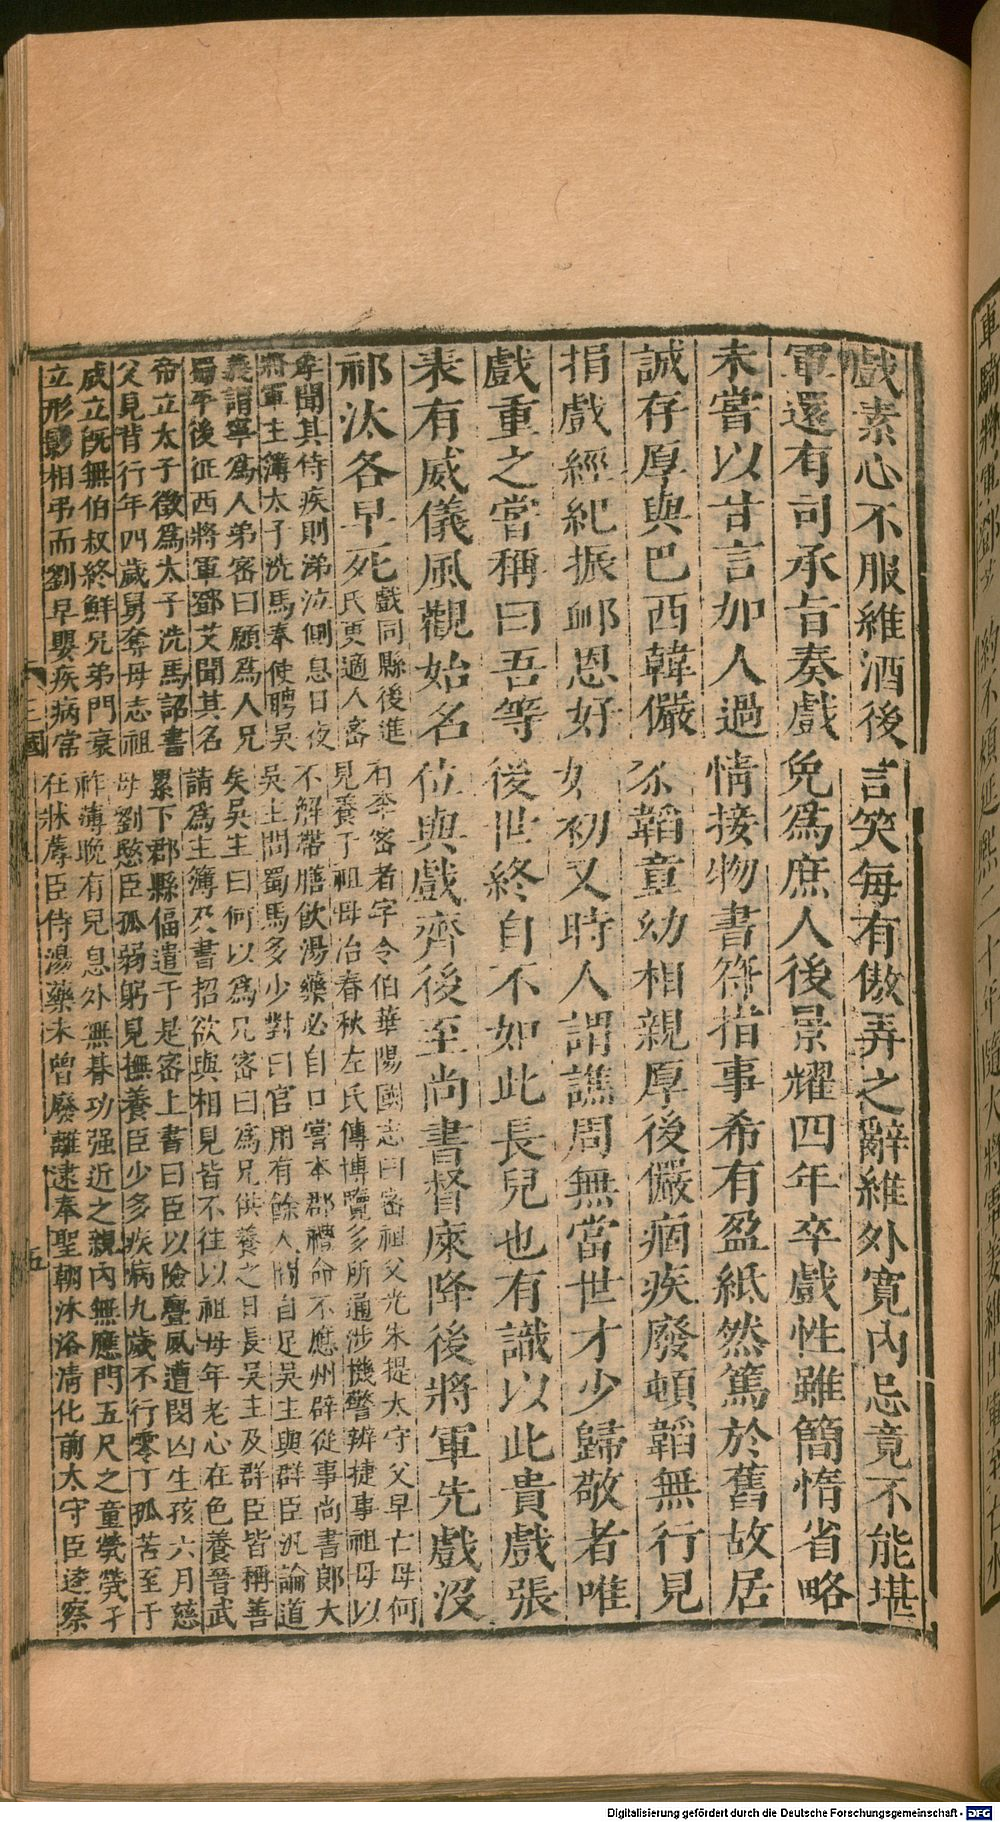 戲素心不服維酒後言笑每有傲弄之辭維外寛內忌竟不能堪
軍還有司承旨奏戲免爲庶人後景耀四年卒戲性雖簡惰省略
未嘗以甘言加人過情接物書符指事希有盈紙然篤於舊故居
誠存厚與巴西韓儼黎韜童幼相親厚後儼痼疾廢頓韜無行見
捐戲經紀振卹恩好如初又時人謂譙周無當世才少歸敬者唯
戲重之嘗稱曰吾等後世終自不如此長兒也有識以此貴戲張
表有威儀風觀始名位與戲齊後至尚書督庲降後將軍先戲沒
祁汰各早死
戲同縣後進有李密者字令伯華陽國志曰密祖父光朱提太守父早亡母何
氏更適人密見養于祖母治春秋左氏傳博覽多所通涉機警辨捷事祖母以
孝聞其侍疾則涕泣側息日夜不解帶膳飲湯藥必自口嘗本郡禮命不應州辟從事尚書郎大
將軍主簿太子洗馬奉使聘吳吳主問蜀馬多少對曰官用有餘人間自足吳主與群臣汎論道
義謂寧爲人弟密曰願爲人兄矣吳主曰何以爲兄密曰爲兄供養之日長吳主及群臣皆稱善
蜀平後征西將軍鄧艾聞其名請爲主簿及書招欲與相見皆不往以祖母年老心在色養晉武
帝立太子徵爲太子洗馬詔書累下郡縣偪遣于是密上書曰臣以險舋夙遭閔凶生孩六月慈
父見背行年四歲舅奪母志祖母劉愍臣孤弱躬見撫養臣少多疾病九歲不行零丁孤苦至于
成立旣無伯叔終鮮兄弟門衰祚薄晚有兒息外無朞功强近之親內無應門五尺之童煢煢孑
立形影相弔而劉早嬰疾病常在牀蓐臣侍湯藥未曾廢離逮奉聖朝沐浴清化前太守臣逵察
三國 五
Digitalisierung gefördert durch die Deutsche Forschungsgemeinschaft - DFG